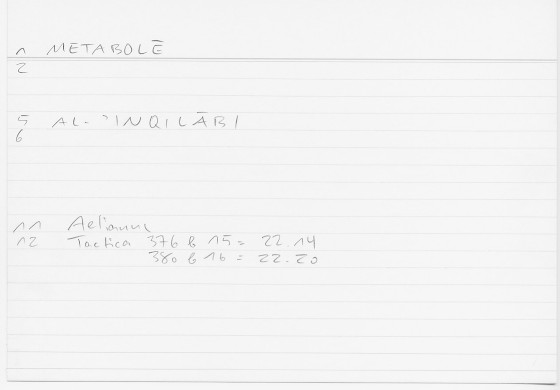 1 METABOLĒ
2
5 AL-'INQILĀBI
6
11 Aelianus
12 Tactica 376 b 15 = 22.14
380 b 16 = 22.20